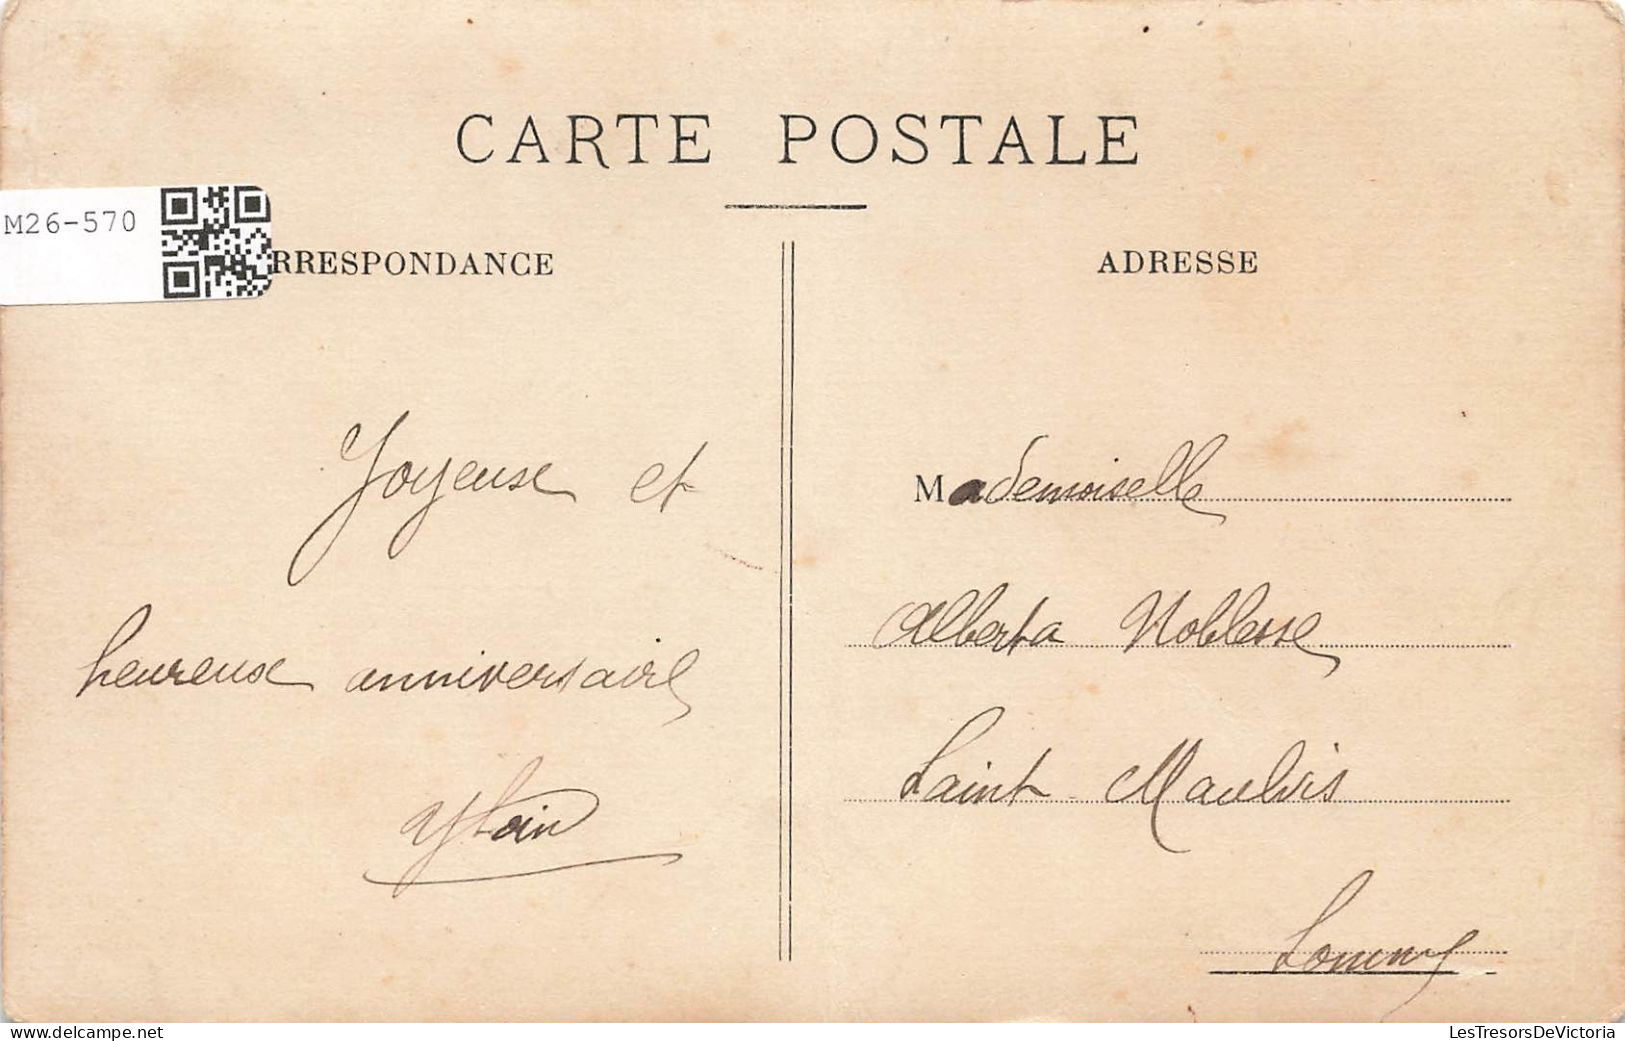 CARTE POSTALE
M26-570
RRESPONDANCE
ADRESSE
Joyeuse et
heureux anniversaire
Mademoiselle
Alberta Noblesse
Saint Maulvis
Somme
LesTresorsDeVictoria
www.delcampe.net